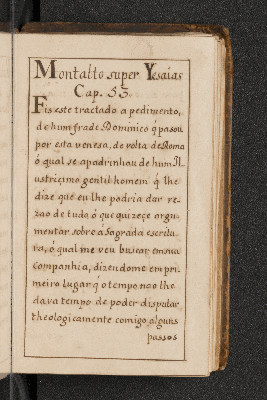 Montalto super Yesaias
Cap. 53.
Fis este tractado a pedimento,
de hum frade Dominico q̃ pasou
por esta venesa, de volta de Roma
ó qual se apadrinhou de hum Il-
ustriçimo gentilhomem q̃ lhe
dize que eu lhe podria dar re-
zão de tudo ó que quizeçe argu-
mentar sobre á Sagrada escritu-
ra, ó qual me veu buscar em sua
companhia, dizendome em pri-
meiro lugar q̃ o tempo não lhe
dava tempo de poder disputar
theologicamente comigo alguns
passos